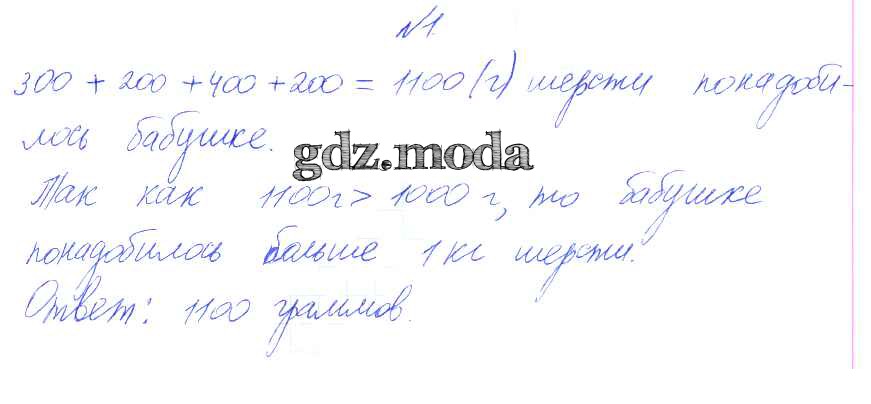 №1
300 + 200 + 400 + 200 = 1100 (г) шерсти понадоби-
лось бабушке.
gdz.moda
Так как 1100г > 1000 г, то бабушке
понадобилось больше 1 кг шерсти.
Ответ: 1100 граммов.